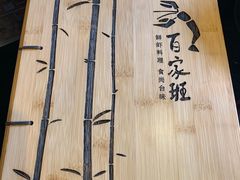 百家班
鲜虾料理 食尚台味